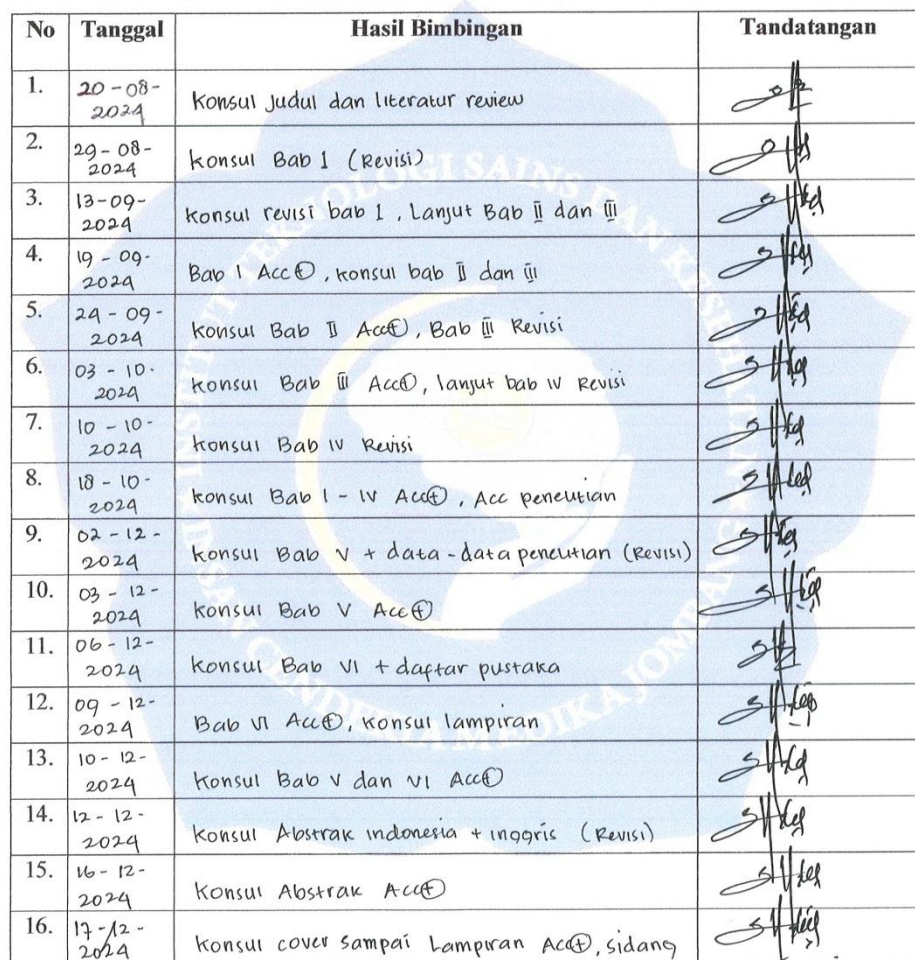 No Tanggal Hasil Bimbingan Tandatangan
1. 20-08-2024 Konsul judul dan literatur review
2. 29-08-2024 Konsul Bab 1 (Revisi)
3. 13-09-2024 Konsul revisi bab 1, Lanjut Bab II dan III
4. 19-09-2024 Bab 1 Acc ⊕, konsul bab II dan III
5. 24-09-2024 Konsul Bab II Acc⊕, Bab III Revisi
6. 03-10-2024 Konsul Bab III Acc⊕, lanjut bab IV Revisi
7. 10-10-2024 Konsul Bab IV Revisi
8. 18-10-2024 Konsul Bab I - IV Acc⊕, Acc penelitian
9. 02-12-2024 Konsul Bab V + data-data penelitian (Revisi)
10. 03-12-2024 Konsul Bab V Acc⊕
11. 06-12-2024 Konsul Bab VI + daftar pustaka
12. 09-12-2024 Bab VI Acc⊕, konsul lampiran
13. 10-12-2024 Konsul Bab V dan VI Acc⊕
14. 12-12-2024 Konsul Abstrak indonesia + inggris (Revisi)
15. 16-12-2024 Konsul Abstrak Acc⊕
16. 17-12-2024 Konsul cover sampai Lampiran Acc⊕, sidang
INSTITUT TEKNOLOGI SAINS DAN KESEHATAN
INSAN CENDEKIA MEDIKA JOMBANG